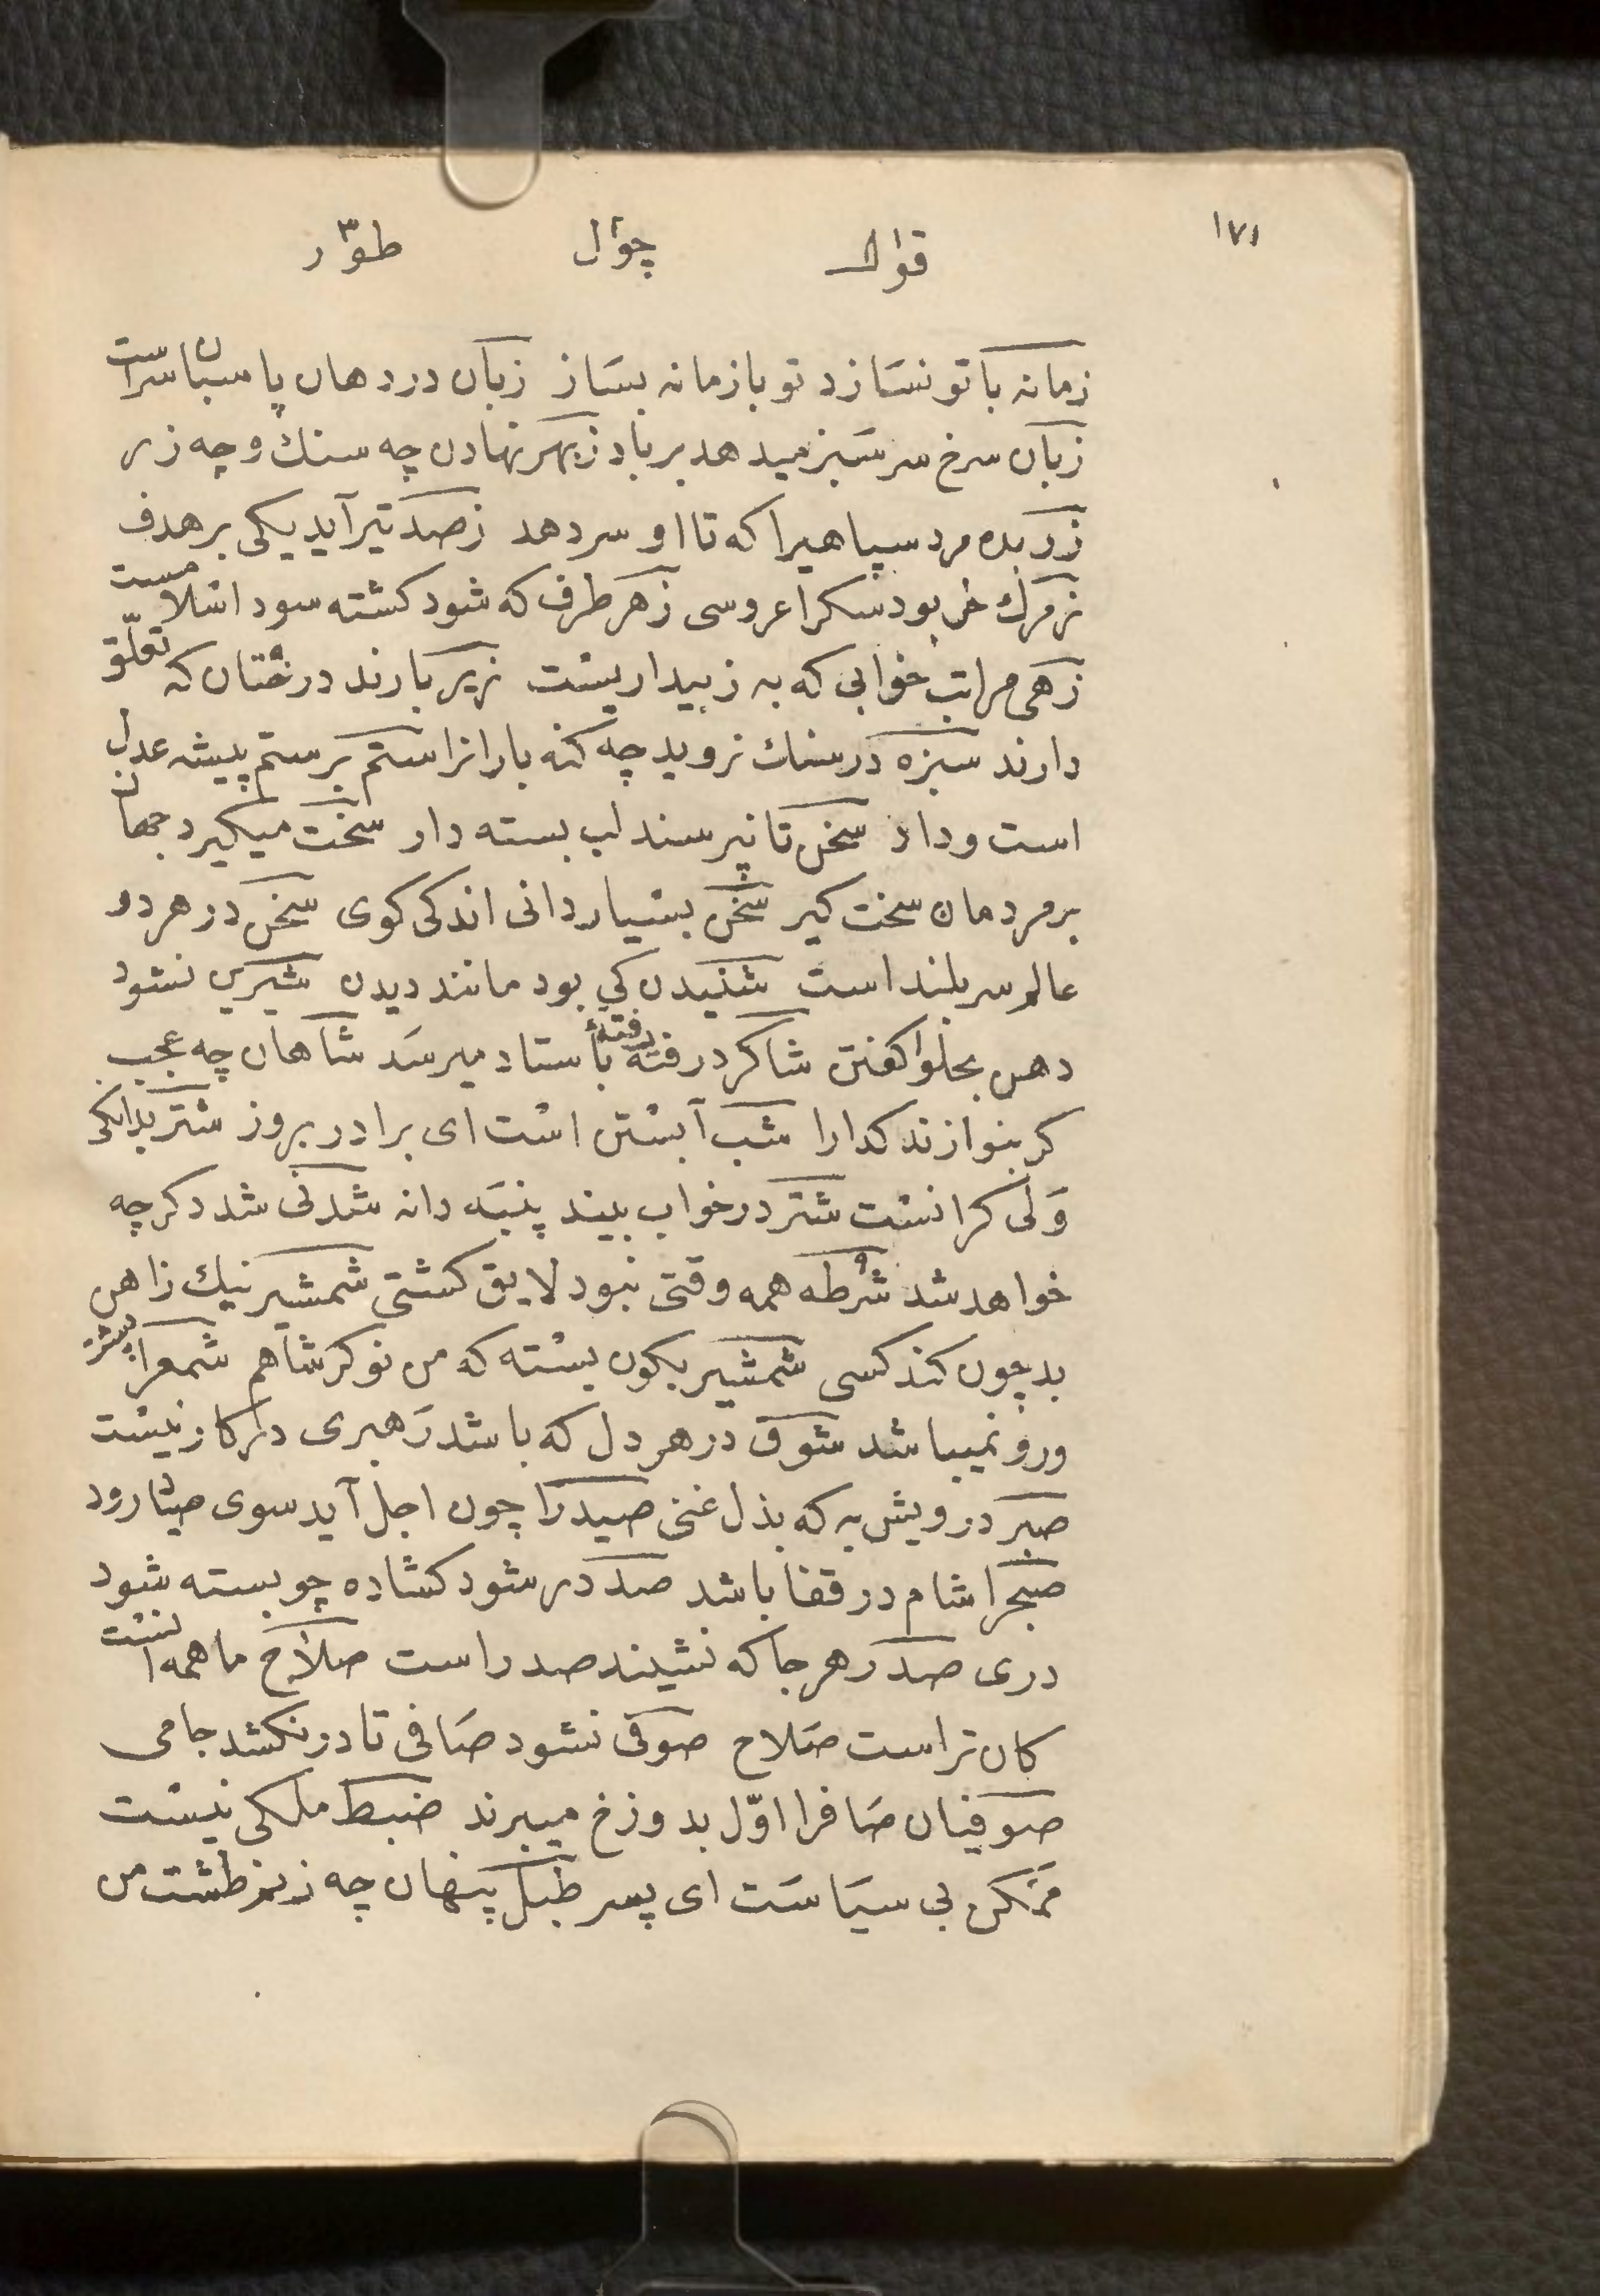 ١٧١
قوال چوال طوّر
زمانه با تو نسازد تو با زمانه بساز زبان در دهان پاسبان سراست
زبان سرخ سر سبز میدهد بر باد زبهر نهادن چه سنك و چه زر
زر بده مرد سپاهیرا که تا او سر دهد ز صد تیر آید یکی بر هدف
زمرك خر بود سکرا عروسی زهر طرف که شود کشته سود اسلامست
زهی مراتب خوابی که به ز بیداریست زیر بارند درختان که تعلّق
دارند سبزه در سنك نروید چه کنه بارانرا ستم بر ستم پیشه عدل
است و داد سخن تا نپرسند لب بسته دار سخت میکیرد جهان
بر مردمان سخت کیر سخن بسیار دانی اندکی کوی سخن در هر دو
عالم سربلند است شنیدن کی بود مانند دیدن شیرین نشود
دهن بحلوا کفتن شاکرد رفته رفته بأستاد میرسد شاهان چه عجب
کر بنوازند کدارا شب آبستن است ای برادر بروز شتر بدانکی
ولی کرانست شتر در خواب بیند پنبه دانه شدنی شد دکر چه
خواهد شد شرطه همه وقتی نبود لایق کشتی شمشیر نیك ز آهن
بد چون کند کسی شمشیر بکون بسته که من نوکر شاهم شمعرا پشت
ورو نمیباشد شوق در هر دل که باشد رهبری درکار نیست
صبر درویش به که بذل غنی صیدرا چون اجل آید سوی صیاد رود
صبحرا شام در قفا باشد صد در شود کشاده چو بسته شود
دری صدر هر جا که نشیند صدر است صلاح ما همه آنست
کان تراست صلاح صوفی نشود صافی تا در نکشد جامی
صوفیان صافرا اوّل بدوزخ میبرند ضبط ملکی نیست
ممکن بی سیاست ای پسر طبل پنهان چه زنم طشت من